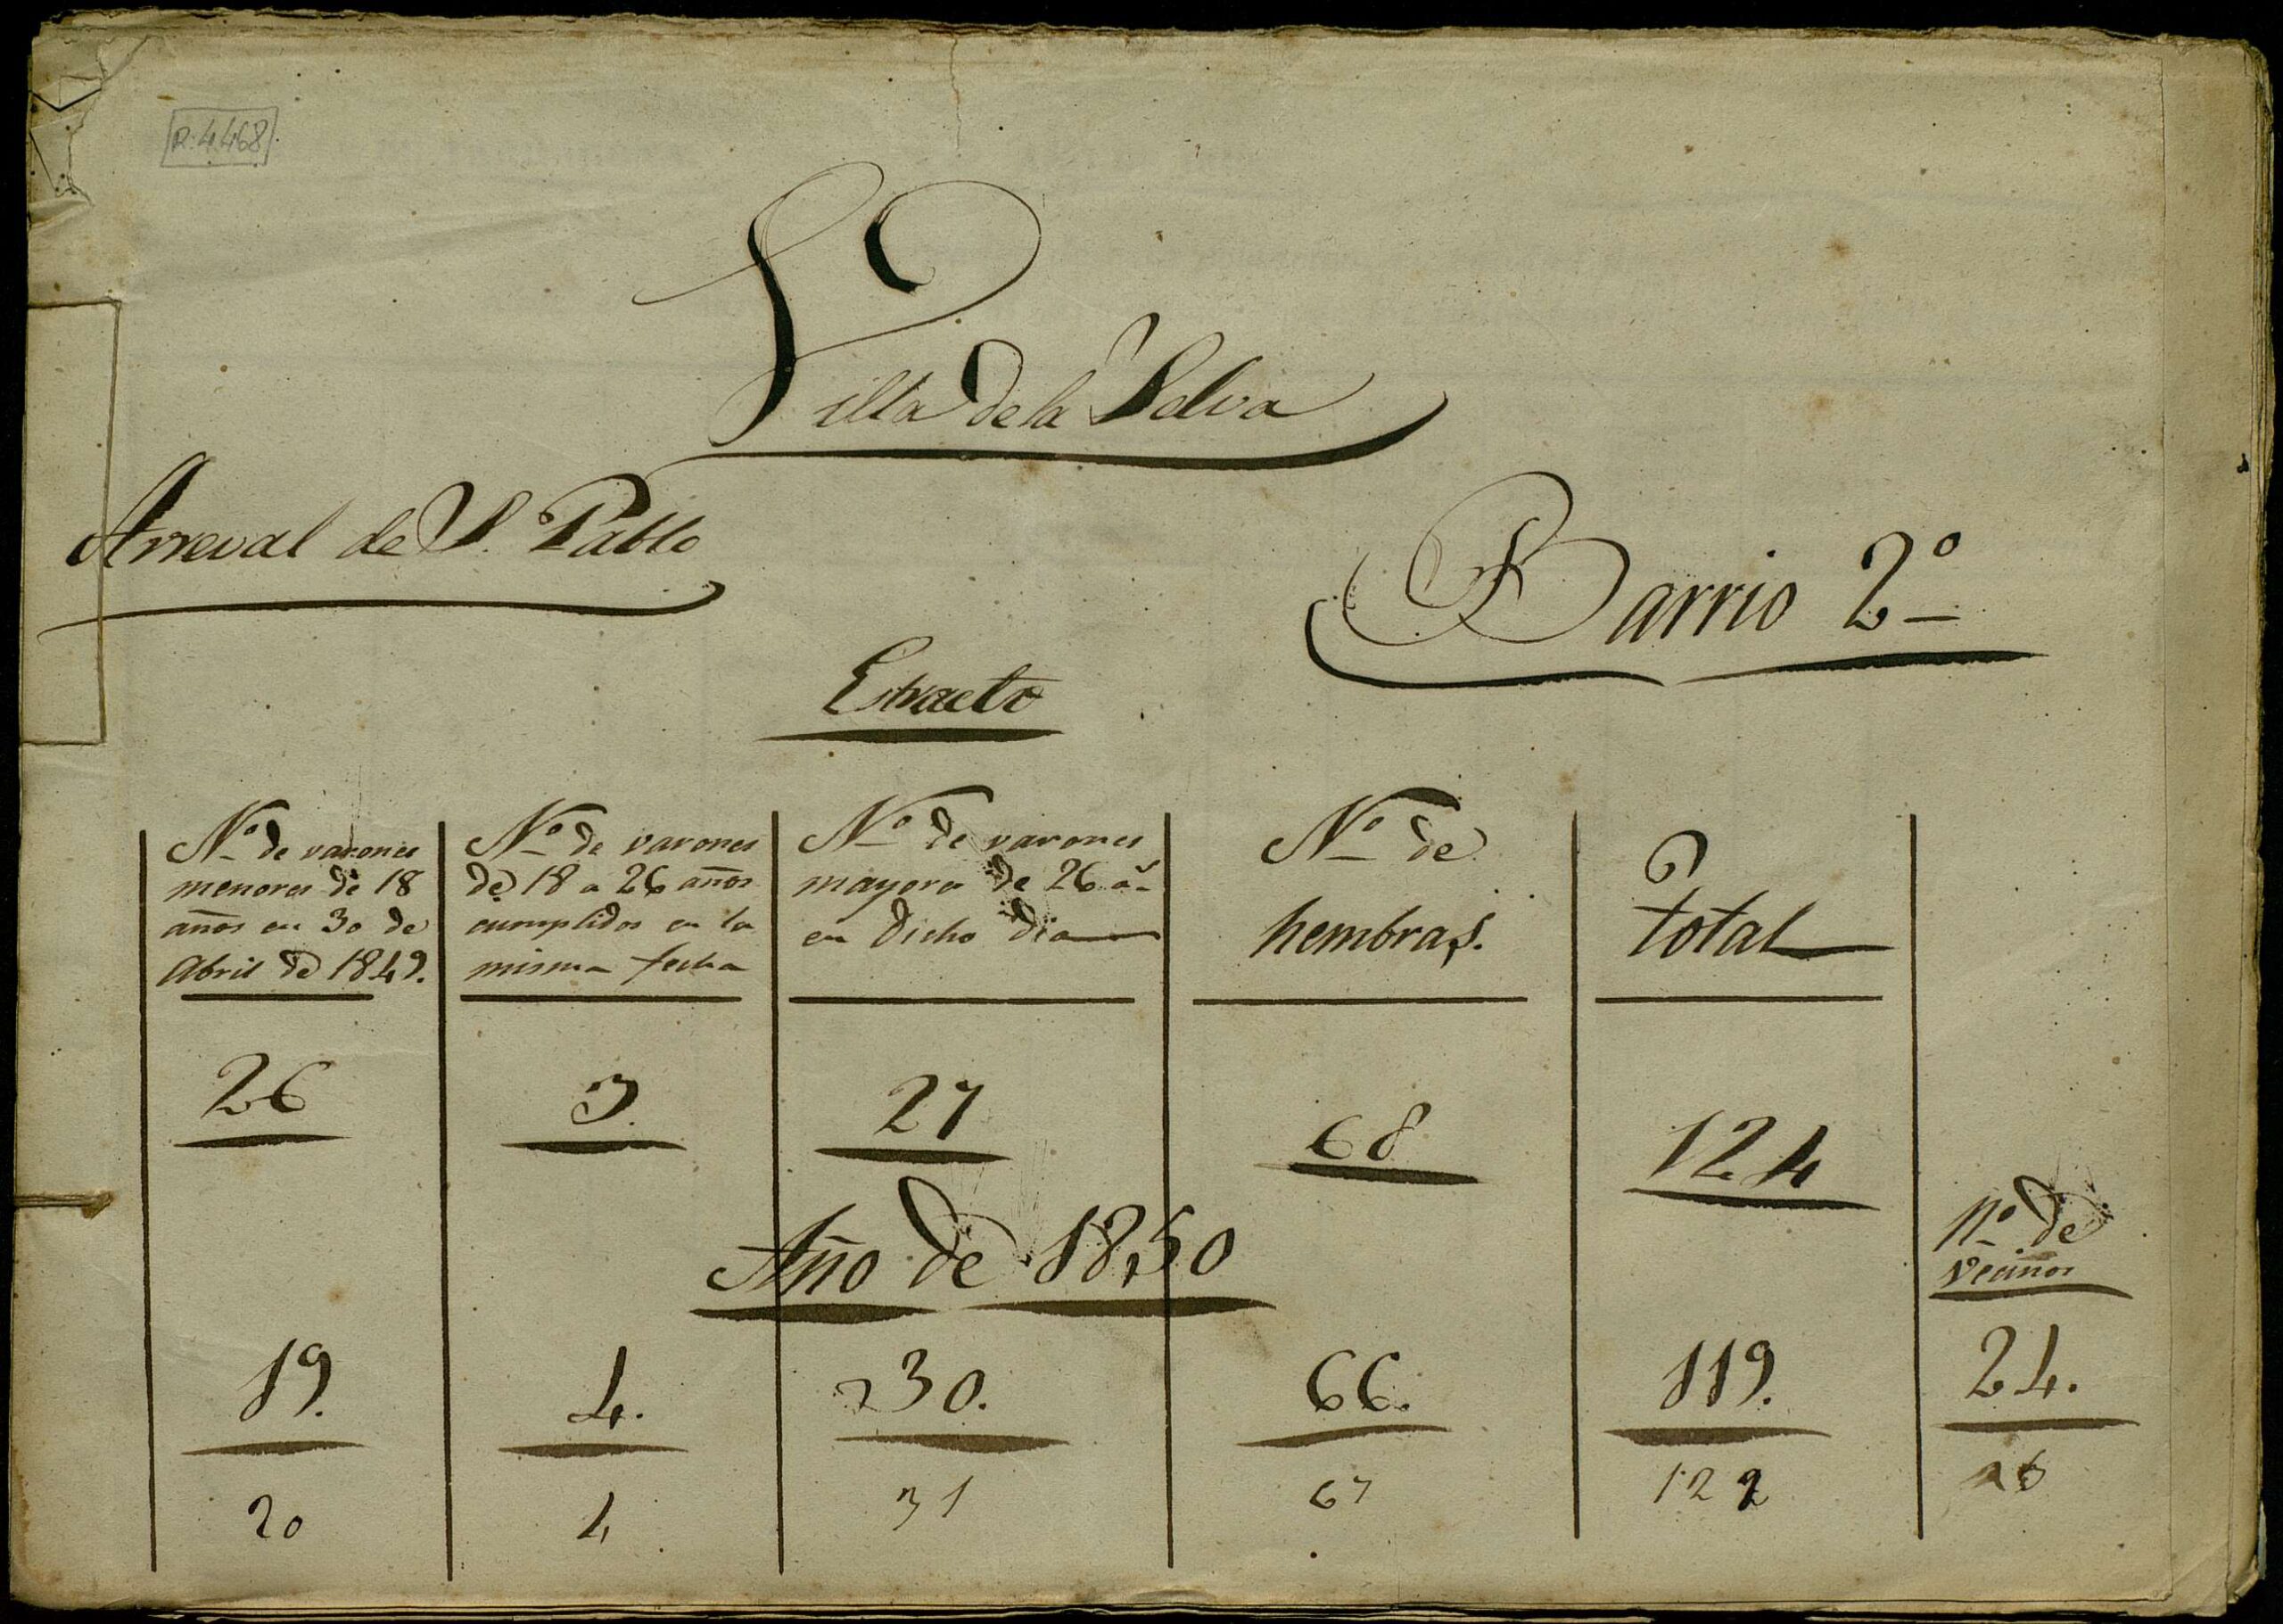 R. 4.468
Villa de la Selva
Arreval de S. Pablo
Barrio 2º
Estracto
Nº de varones
menores de 18
años en 30 de
Abril de 1849.
Nº de varones
de 18 a 26 años
cumplidos en la
misma fecha
Nº de varones
mayores de 26 aˢ
en dicho dia
Nº de
hembras.
total
26
3.
27
68
124
Año de 1850
Nº de
vecinos
19.
4.
30.
66.
119.
24.
20
4
31
67
122